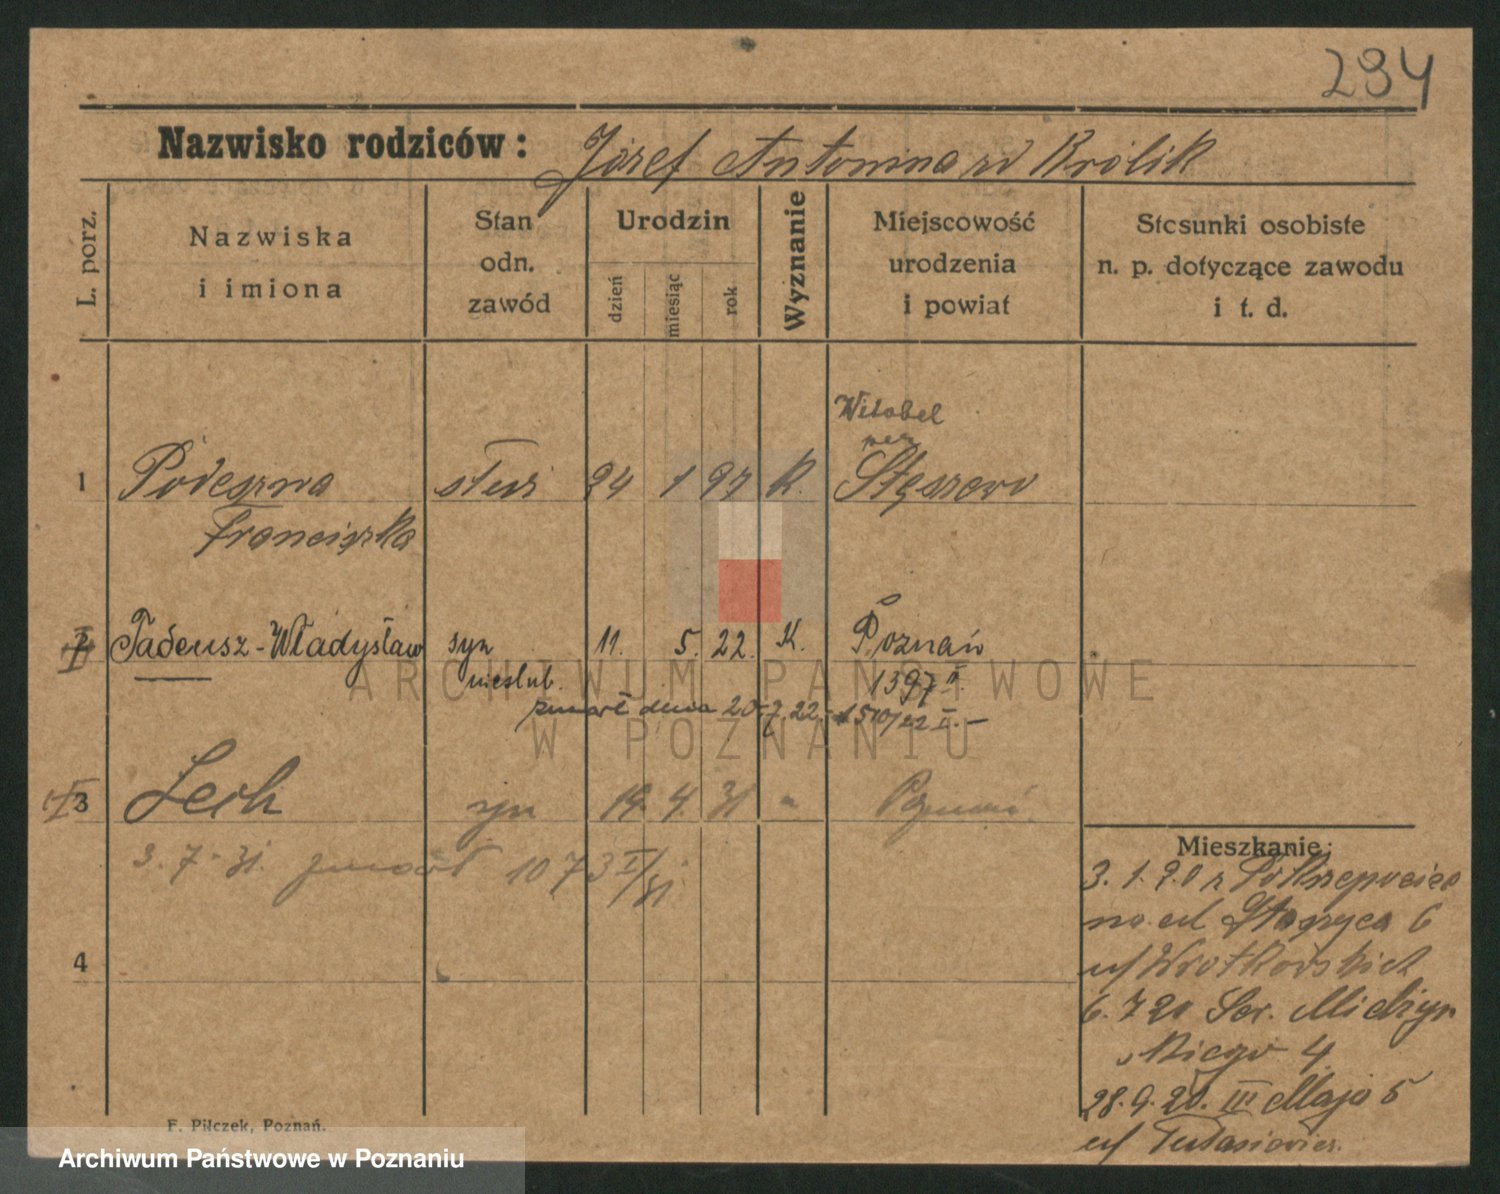 294
Nazwisko rodziców: Józef Antonina zd Królik
L. porz.
Nazwiska
i imiona
Stan
odn.
zawód
Urodzin
dzień
miesiąc
rok
Wyznanie
Miejscowość
urodzenia
i powiat
Stosunki osobiste
n. p. dotyczące zawodu
i t. d.
Witobel
1 Podeszwa służ 24 1 97 K. Stęszewo
Franciszka
2 Tadeusz-Władysław syn 11. 5. 22. K. Poznań
nieślub. 1397 II.
zmarł dnia 20.7.22. 1510/22 II.-
3 Lech syn 14. 4. 31 " Poznań
3.7.31. zmarł 1073 I/31
4
Mieszkanie:
3.1.20 z
na ul 6
u/
6.7.20 4
28.9.20. III Maja 5
u/
F. Pilczek, Poznań.
ARCHIWUM PAŃSTWOWE
W POZNANIU
Archiwum Państwowe w Poznaniu